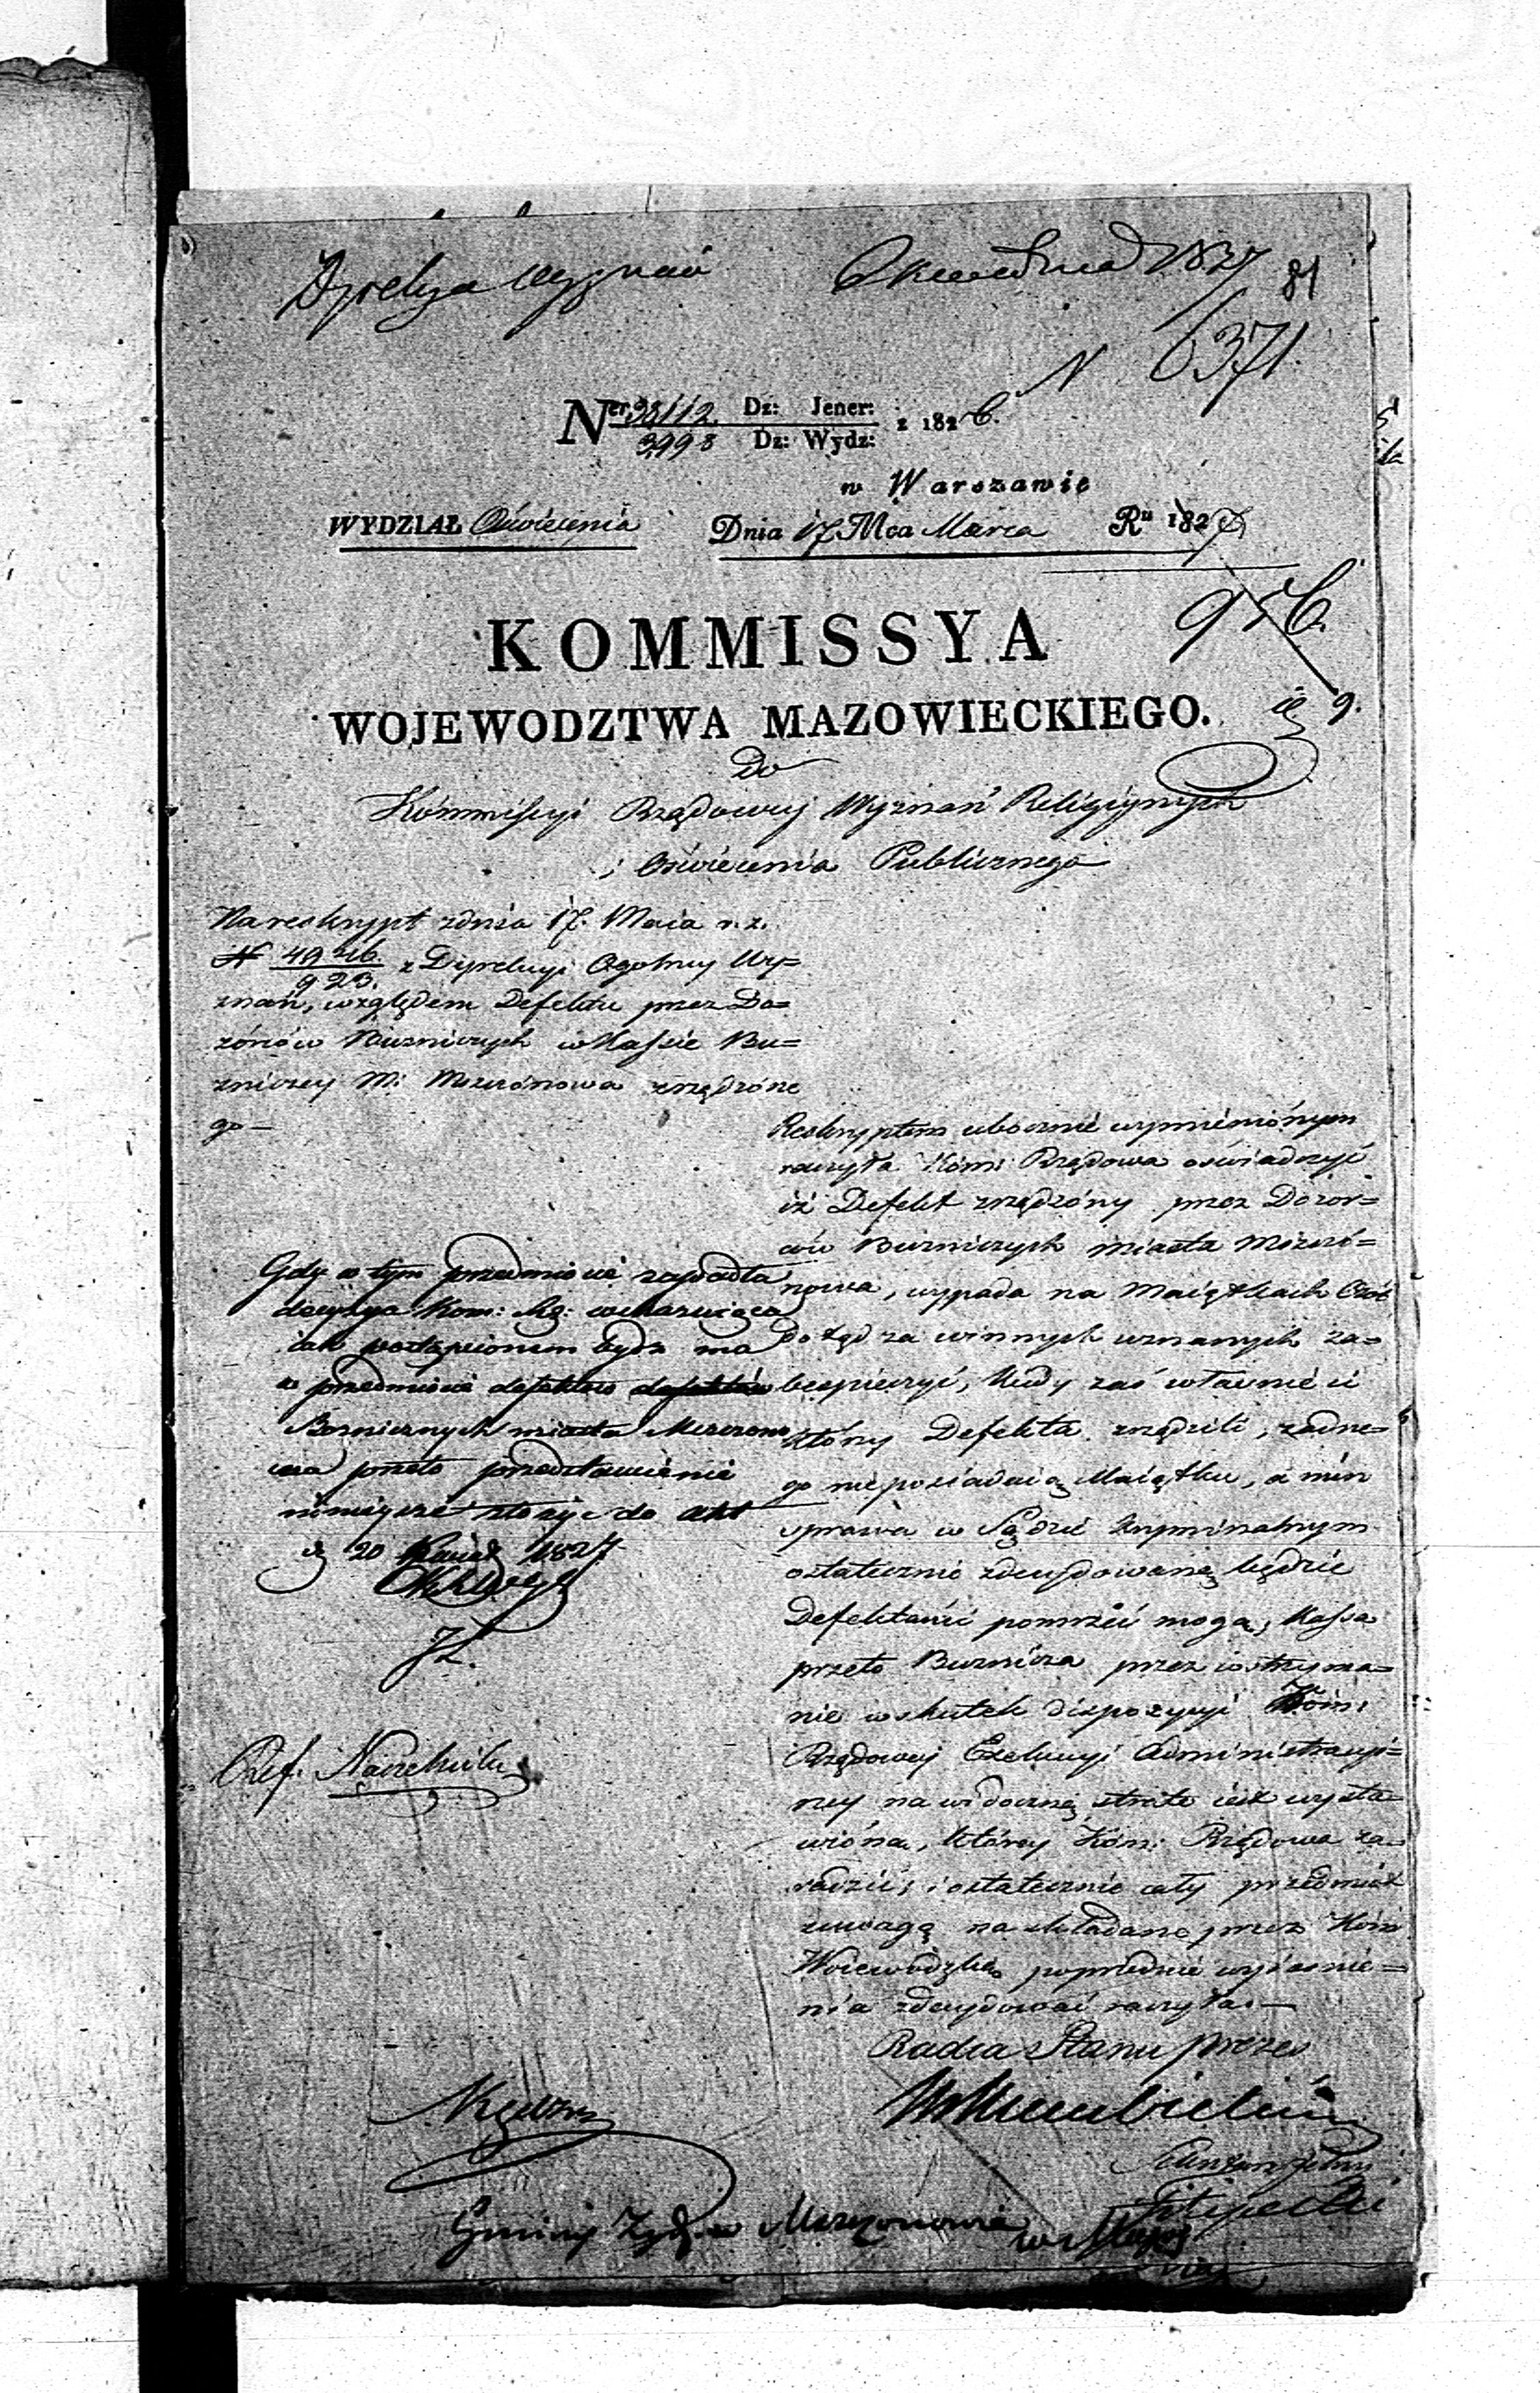 Dyrekcya Wyznań
6 Kwietnia 1827
81
N 6371.
Ner 38112. Dz: Jener: z 1826.
3998 Dz: Wydz:
w Warszawie
WYDZIAŁ Oświecenia Dnia 17 Mca Marca Ru 1827
956.
KOMMISSYA
WOJEWODZTWA MAZOWIECKIEGO.
Do
Kommissyi Rządowej Wyznań Religiynych
i Oświecenia Publicznego
Na reskrypt z dnia 17. Maia r. z.
N 4926. z Dyrekcyi Ogolney Wy=
923.
znań, względem Defektu przez Do=
zorców Bużniczych w Kassie Bu=
zniczey M: Mszczonowa zrządzone
go —
Reskryptem ubocznie wymienionym
raczyła Kom: Rządowa oświadczyć
iż Defekt zrządzony przez Dozor=
ców Buzniczych miasta Mszczo=
nowa, wypada na Maiątkach Osób
dotąd za winnych uznanych za=
bezpieczyć, kiedy zaś właśnie ci
którzy Defekta zrządzili, zadne=
go nie posiadaią Maiątku, a nim
sprawa w Sądzie Kryminalnym
ostatecznie zdecydowaną będzie
Defektanci pomrzeć mogą, Kassa
przeto Buznicza przez wstrzyma=
nie w skutek dispozycyi Kom:
Rządowej Exekucyi Administracyi=
ney na widoczną stratę iest wysta=
wiona, którey Kom: Rządowa za=
radzić, i ostatecznie cały przedmiot
z uwagą na składane przez Kom:
Woiewódzką poprzednie wyiaśnie=
nia zdecydować raczyła. —
Radca Stanu Prezes
Gdy w tym przedmiocie zapadła
decyzya Kom: Rz: wskazuiąca
iak postąpionem bydź ma
w przedmiocie defektów defektów
Boznicznych miasta Mszczono
wa przeto przedstawienie
ninieysze złożyć do akt
d 20 Kwiet 1827
Ref.
Sekretarz Jlny
Filipecki
Gminy Żyd: w Mszczonowie